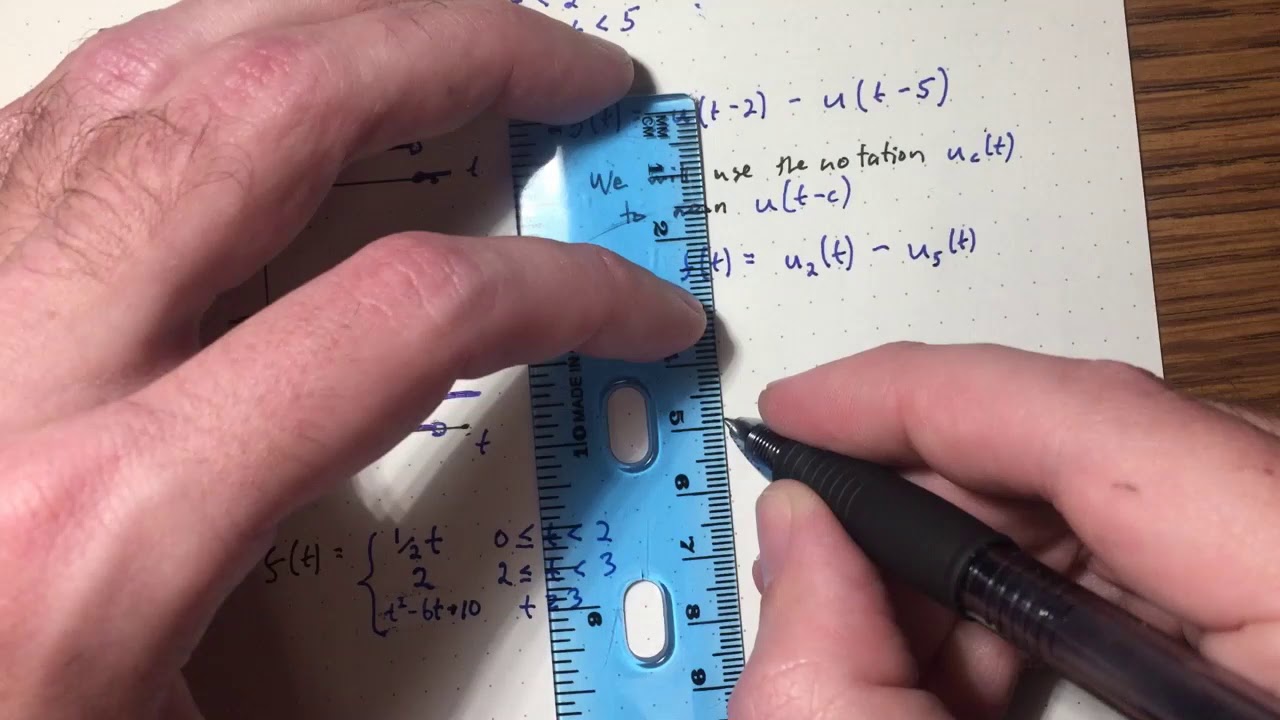 < 2
< 5
(t-2) - u(t-5)
We use the notation u_c(t)
to u(t-c)
(t) = u_2(t) - u_5(t)
t
t
f(t) = { 1/2 t 0 ≤ t < 2
2 2 ≤ t < 3
t²-6t+10 t ≥ 3
MM
CM
1
2
5
6
7
8
9
10 MADE IN